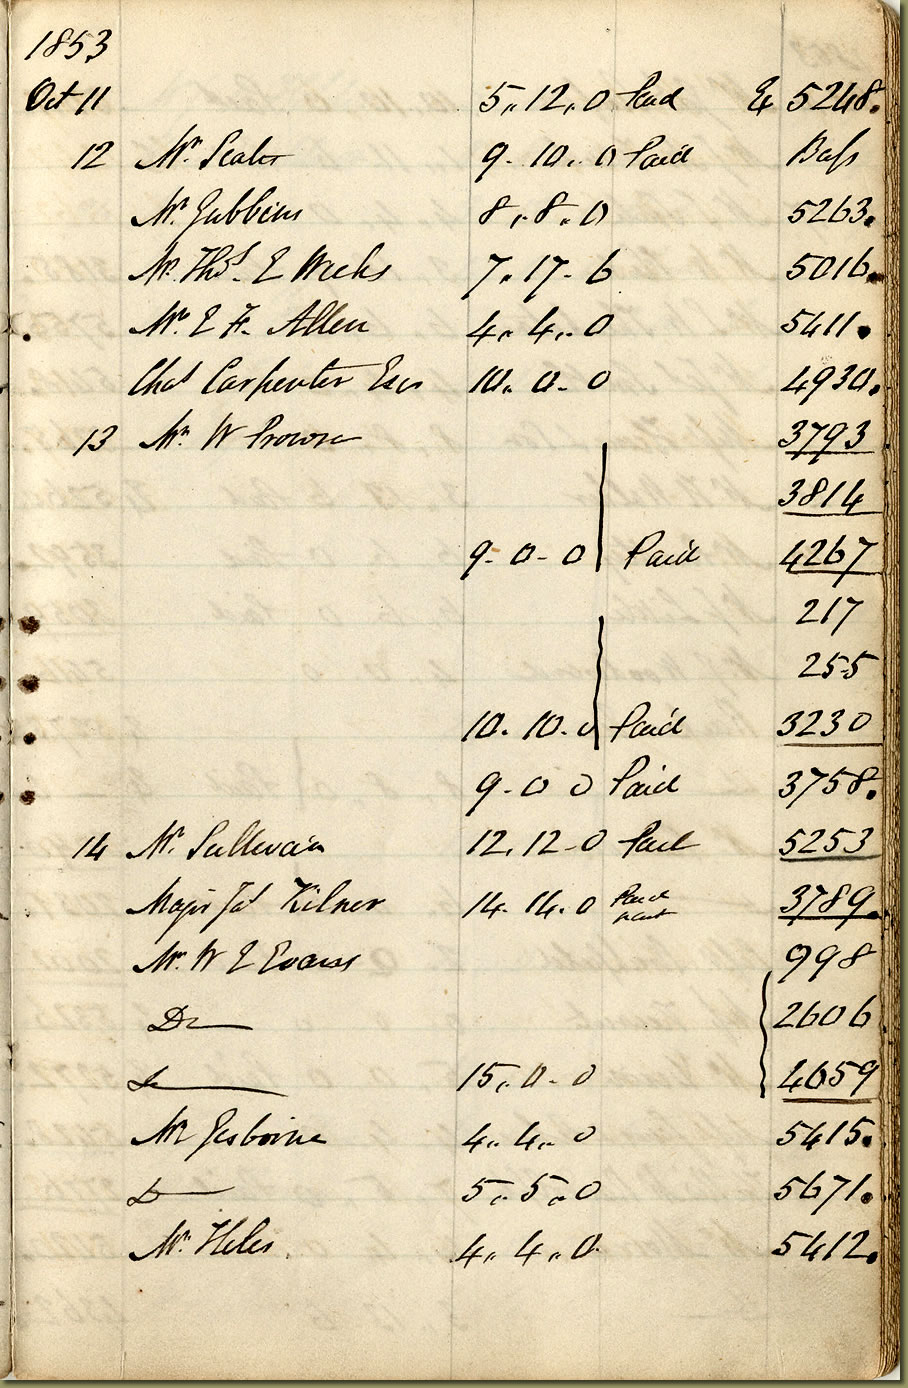 1853
Oct 11 5,, 12,, 0 Paid & 5248.
12 Mr. Scales 9 - 10,, 0 Paid Bass
Mr. Gubbins 8,, 8,, 0 5263.
Mr. Thos. E Weeks 7,, 17 - 6 5016.
Mr. E F. Allen 4,, 4,, 0 5411.
Chas Carpenter Esqr 10,, 0 - 0 4930.
13 Mr. W Prowse 3793
3814
9 - 0 - 0 Paid 4267
217
255
10. 10. 0 Paid 3230
9 - 0 0 Paid 3758.
14 Mr. Sullivan 12, 12 - 0 Paid 5253
Major Jas Kilner 14. 14. 0 Paid part 3789.
Mr. W E Evans 998
Do 2606
Do 15,, 0 - 0 4659
Mr Gisborne 4,, 4,, 0 5415.
Do 5,, 5,, 0 5671.
Mr. Heles 4,, 4,, 0. 5412.